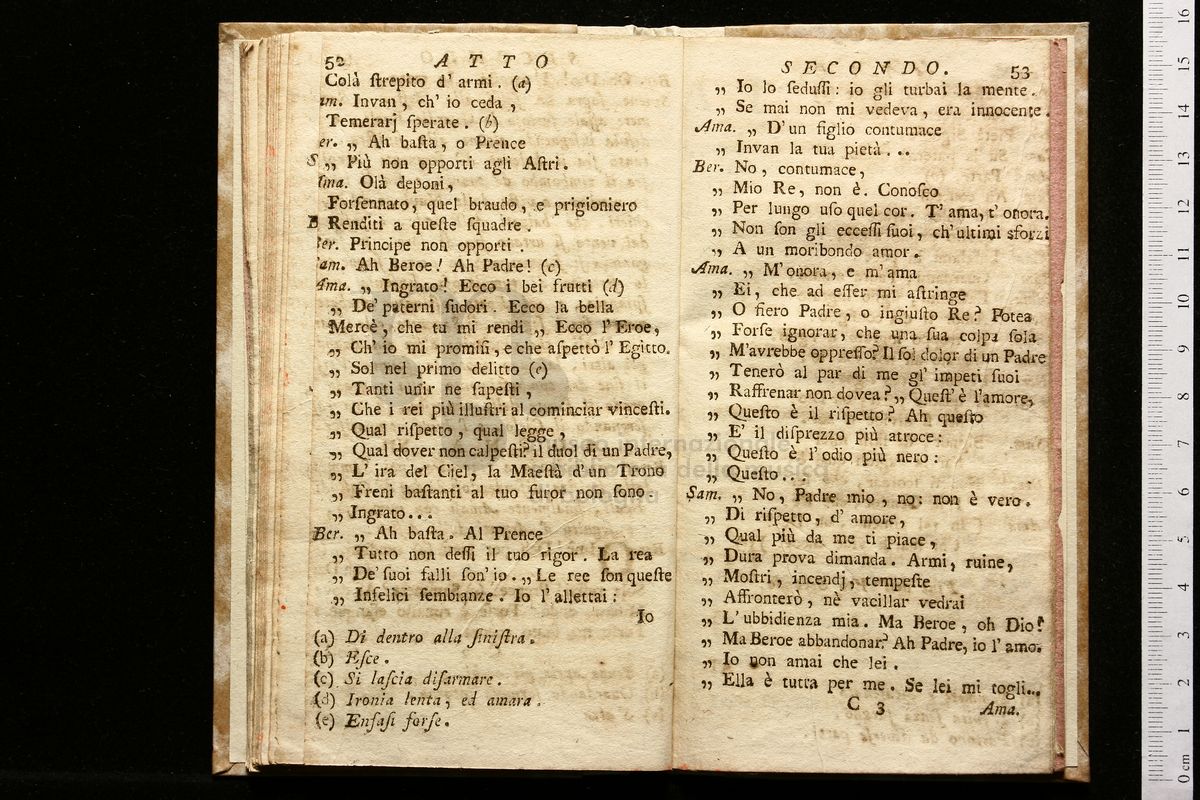 52 ATTO
Colà ſtrepito d' armi. (a)
am. Invan, ch' io ceda,
Temerarj ſperate. (b)
er. „ Ah baſta, o Prence
S „ Più non opporti agli Aſtri.
Ama. Olà deponi,
Forſennato, quel braudo, e prigioniero
B Renditi a queſte ſquadre.
Ber. Principe non opporti.
Sam. Ah Beroe! Ah Padre! (c)
Ama. „ Ingrato! Ecco i bei frutti (d)
„ De' paterni ſudori. Ecco la bella
Mercè, che tu mi rendi „ Ecco l' Eroe,
„ Ch' io mi promiſi, e che aſpettò l' Egitto.
„ Sol nel primo delitto (e)
„ Tanti unir ne ſapeſti,
„ Che i rei più illuſtri al cominciar vinceſti.
„ Qual riſpetto, qual legge,
„ Qual dover non calpeſti? il duol di un Padre,
„ L' ira del Ciel, la Maeſtà d' un Trono
„ Freni baſtanti al tuo furor non ſono.
„ Ingrato...
Ber. „ Ah baſta. Al Prence
„ Tutto non deſſi il tuo rigor. La rea
„ De' ſuoi falli ſon' io. „ Le ree ſon queſte
„ Infelici ſembianze. Io l' allettai:
Io
(a) Di dentro alla ſiniſtra.
(b) Eſce.
(c) Si laſcia diſarmare.
(d) Ironia lenta, ed amara.
(e) Enfaſi forſe.
SECONDO. 53
„ Io lo ſeduſſi: io gli turbai la mente.
„ Se mai non mi vedeva, era innocente.
Ama. „ D' un figlio contumace
„ Invan la tua pietà...
Ber. No, contumace,
„ Mio Re, non è. Conoſco
„ Per lungo uſo quel cor. T' ama, t' onora.
„ Non ſon gli ecceſſi ſuoi, ch' ultimi sforzi
„ A un moribondo amor.
Ama. „ M' onora, e m' ama
„ Ei, che ad eſſer mi aſtringe
„ O fiero Padre, o ingiuſto Re? Potea
„ Forſe ignorar, che una ſua colpa ſola
„ M'avrebbe oppreſſo? Il ſol dolor di un Padre
„ Tenerò al par di me gl' impeti ſuoi
„ Raffrenar non dovea? „ Queſt' è l'amore,
„ Queſto è il riſpetto? Ah queſto
„ E' il diſprezzo più atroce:
„ Queſto è l' odio più nero:
„ Queſto...
Sam. „ No, Padre mio, no: non è vero.
„ Di riſpetto, d' amore,
„ Qual più da me ti piace,
„ Dura prova dimanda. Armi, ruine,
„ Moſtri, incendj, tempeſte
„ Affronterò, nè vacillar vedrai
„ L' ubbidienza mia. Ma Beroe, oh Dio!
„ Ma Beroe abbandonar? Ah Padre, io l' amo.
„ Io non amai che lei.
„ Ella è tutta per me. Se lei mi togli...
C 3 Ama.